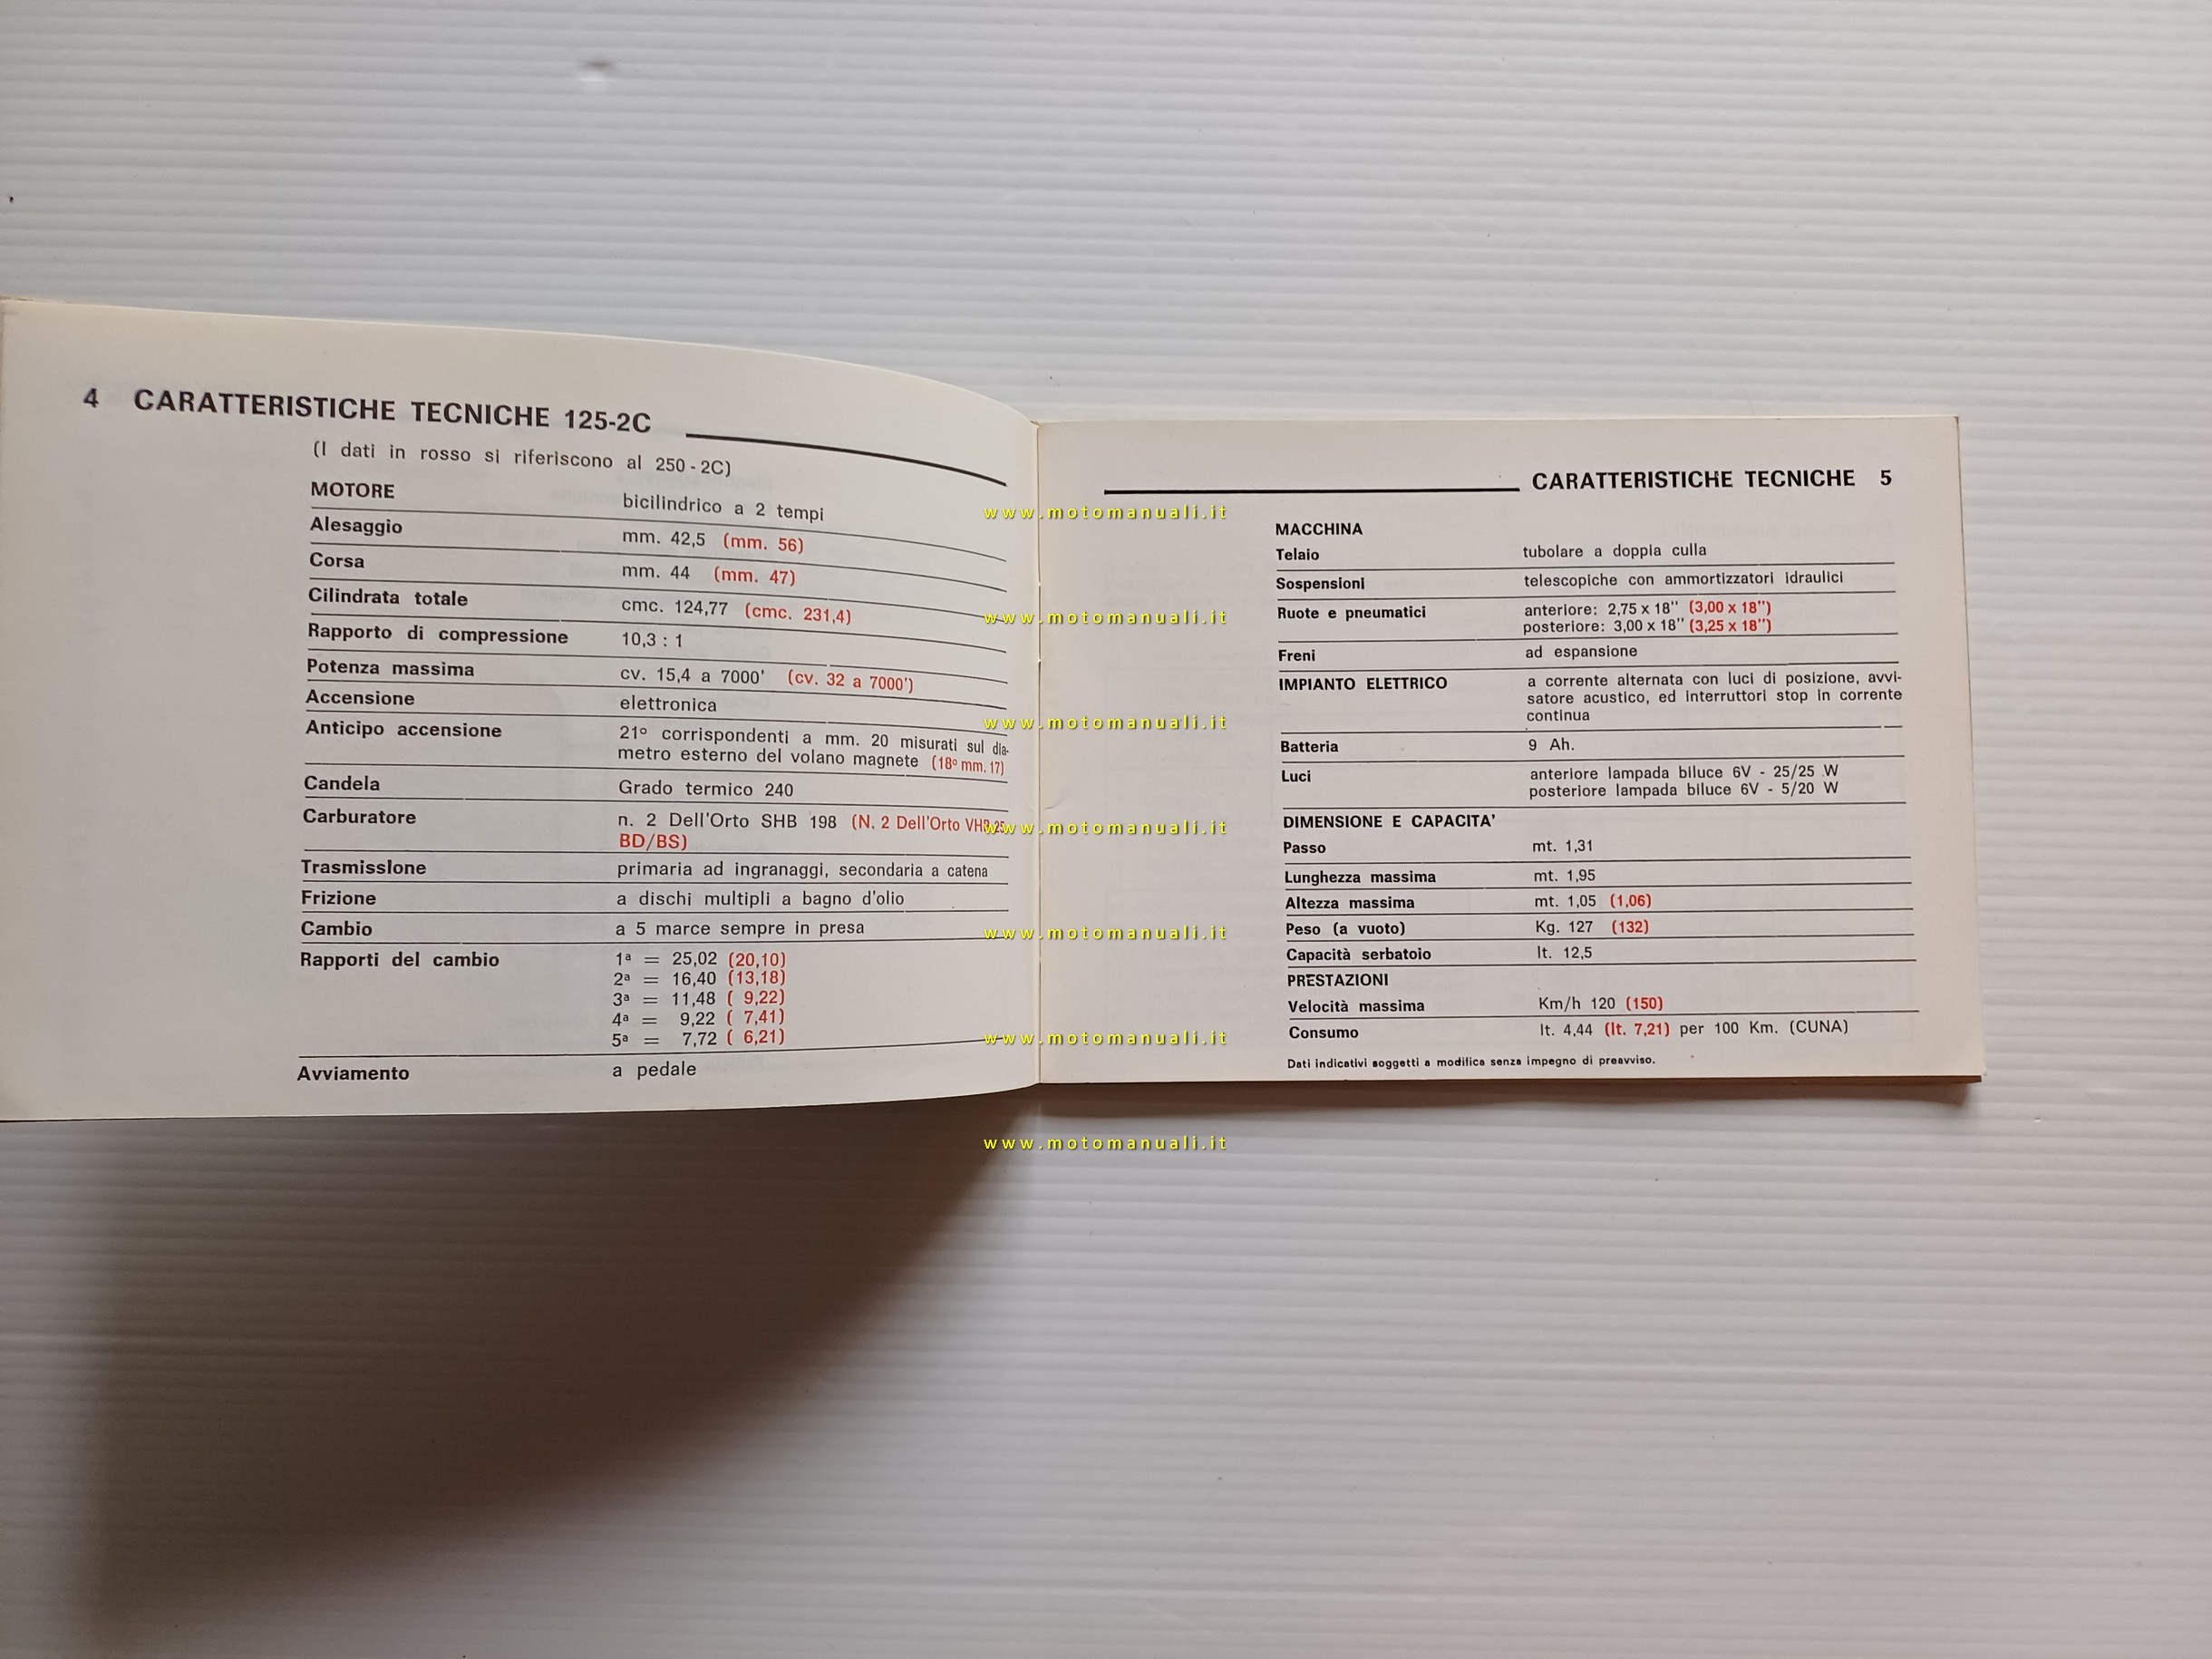 4 CARATTERISTICHE TECNICHE 125-2C
(I dati in rosso si riferiscono al 250-2C)
MOTORE bicilindrico a 2 tempi
Alesaggio mm. 42,5 (mm. 56)
Corsa mm. 44 (mm. 47)
Cilindrata totale cmc. 124,77 (cmc. 231,4)
Rapporto di compressione 10,3 : 1
Potenza massima cv. 15,4 a 7000' (cv. 32 a 7000')
Accensione elettronica
Anticipo accensione 21° corrispondenti a mm. 20 misurati sul dia-
metro esterno del volano magnete (18° mm. 17)
Candela Grado termico 240
Carburatore n. 2 Dell'Orto SHB 198 (N. 2 Dell'Orto VHB 25
BD/BS)
Trasmissione primaria ad ingranaggi, secondaria a catena
Frizione a dischi multipli a bagno d'olio
Cambio a 5 marce sempre in presa
Rapporti del cambio 1ª = 25,02 (20,10)
2ª = 16,40 (13,18)
3ª = 11,48 ( 9,22)
4ª = 9,22 ( 7,41)
5ª = 7,72 ( 6,21)
Avviamento a pedale
CARATTERISTICHE TECNICHE 5
MACCHINA
Telaio tubolare a doppia culla
Sospensioni telescopiche con ammortizzatori idraulici
Ruote e pneumatici anteriore: 2,75 x 18" (3,00 x 18")
posteriore: 3,00 x 18" (3,25 x 18")
Freni ad espansione
IMPIANTO ELETTRICO a corrente alternata con luci di posizione, avvi-
satore acustico, ed interruttori stop in corrente
continua
Batteria 9 Ah.
Luci anteriore lampada biluce 6V - 25/25 W
posteriore lampada biluce 6V - 5/20 W
DIMENSIONE E CAPACITA'
Passo mt. 1,31
Lunghezza massima mt. 1,95
Altezza massima mt. 1,05 (1,06)
Peso (a vuoto) Kg. 127 (132)
Capacità serbatoio lt. 12,5
PRESTAZIONI
Velocità massima Km/h 120 (150)
Consumo lt. 4,44 (lt. 7,21) per 100 Km. (CUNA)
Dati indicativi soggetti a modifica senza impegno di preavviso.
www.motomanuali.it
www.motomanuali.it
www.motomanuali.it
www.motomanuali.it
www.motomanuali.it
www.motomanuali.it
www.motomanuali.it